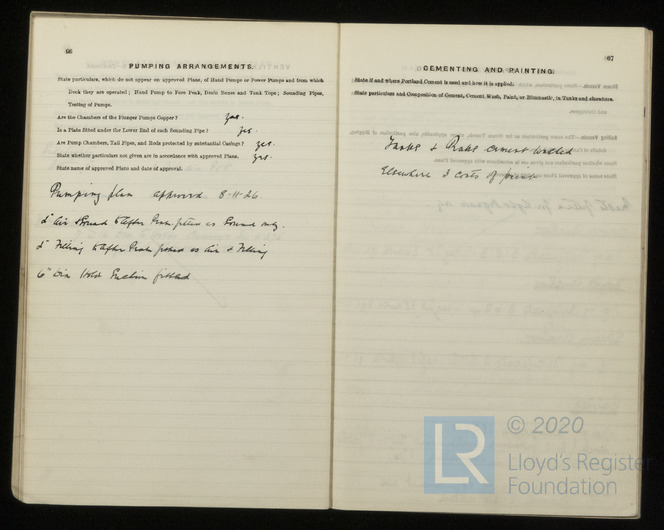 66
PUMPING ARRANGEMENTS.
State particulars, which do not appear on approved Plans, of Hand Pumps or Power Pumps and from which
Deck they are operated; Hand Pump to Fore Peak, Deain Boxes and Tank Tops; Sounding Pipes,
Testing of Pumps.
Are the Chambers of the Plunger Pumps Copper? yes.
Is a Plate fitted under the Lower End of each Sounding Pipe? yes.
Are Pump Chambers, Tail Pipes, and Rods protected by substantial Casings? yes.
State whether particulars not given are in accordance with approved Plans. yes.
State name of approved Plans and date of approval.
Pumping plan approved 8-11-26.
2" Air & Sound to After Peak fitted as Sound only.
2" Filling to After Peak fitted as Air & Filling
6" Suction fitted
67
CEMENTING AND PAINTING.
State if and where Portland Cement is used and how it is applied:
State particulars and Composition of Cement, Cement Wash, Paint, or Bitumastic, in Tanks and elsewhere.
Tanks & Peaks cement washed
Elsewhere 2 coats of paint
LR
© 2020
Lloyd's Register
Foundation